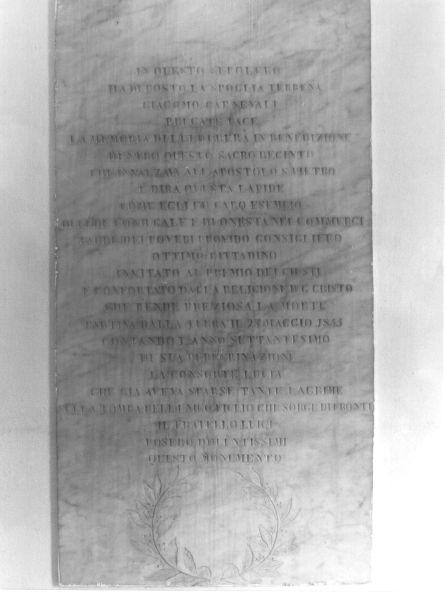 IN QUESTO SEPOLCRO
HA DEPOSTO LA SPOGLIA TERRENA
GIACOMO CARNEVALI
PREGATE PACE
LA MEMORIA DI LUI DURERÀ IN BENEDIZIONE
DI VERO QUESTO SACRO RECINTO
CHE INNALZAVA ALL'APOSTOLO S. PIETRO
E DIRA QUESTA LAPIDE
COME EGLI FU CARO ESEMPIO
DI CONIUGALE E DI ONESTÀ NEI COMMERCI
PADRE DEI POVERI PROVIDO CONSIGLIERO
OTTIMO CITTADINO
INVITATO AL PREMIO DEI GIUSTI
E CONFORTATO DALLA RELIGIONE DI G. CRISTO
CHE RENDE PREZIOSA LA MORTE
PARTIVA DALLA TERRA IL MAGGIO
CONTANDO L'ANNO SETTANTESIMO
DI SUA PEREGRINAZIONE
LA CONSORTE LUCIA
CHE GIA AVEVA SPARSE TANTE LAGRIME
SULLA TOMBA DELL'UNICO FIGLIO CHE SORGE DI FRONTE
IL FRATELLO LUIGI
POSERO DOLENTISSIMI
QUESTO MONUMENTO